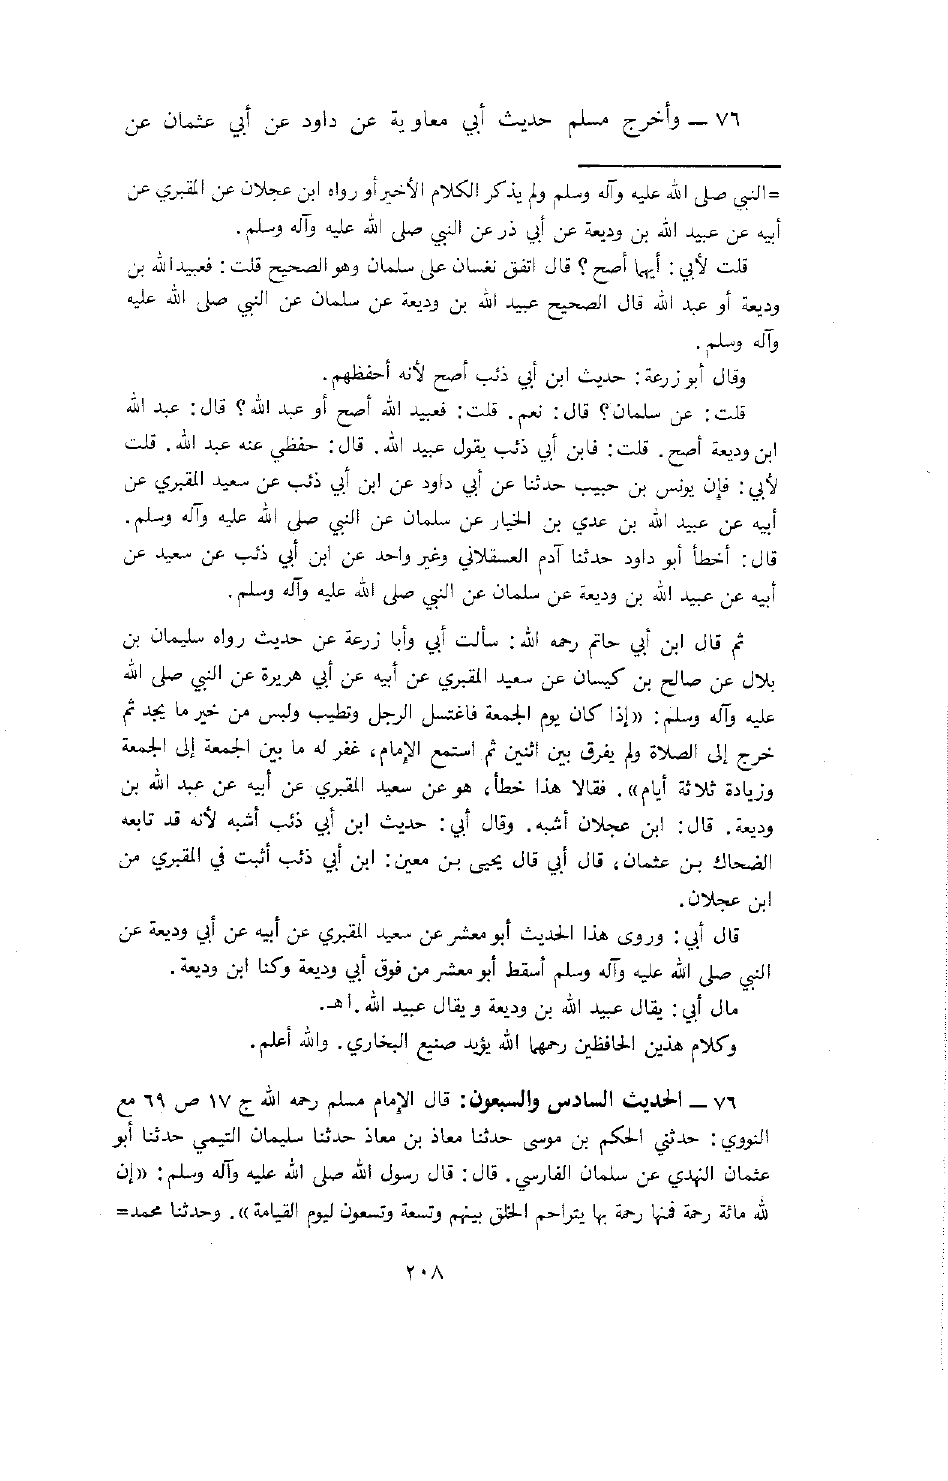 ٧٦ ــ وأخرج مسلم حديث أبي معاوية عن داود عن أبي عثمان عن
=النبي صلى الله عليه وآله وسلم ولم يذكر الكلام الأخير أو رواه ابن عجلان عن المقبري عن
أبيه عن عبيد الله بن وديعة عن أبي ذر عن النبي صلى الله عليه وآله وسلم.
قلت لأبي: أيها أصح؟ قال اتفق نفسان على سلمان وهو الصحيح قلت: فعبيد الله بن
وديعة أو عبد الله قال الصحيح عبيد الله بن وديعة عن سلمان عن النبي صلى الله عليه
وآله وسلم.
وقال أبو زرعة: حديث ابن أبي ذئب أصح لأنه أحفظهم.
قلت: عن سلمان؟ قال: نعم. قلت: فعبيد الله أصح أو عبد الله؟ قال: عبد الله
ابن وديعة أصح. قلت: فابن أبي ذئب يقول عبيد الله. قال: حفظي عنه عبد الله. قلت
لأبي: فإن يونس بن حبيب حدثنا عن أبي داود عن ابن أبي ذئب عن سعيد المقبري عن
أبيه عن عبيد الله بن عدي بن الخيار عن سلمان عن النبي صلى الله عليه وآله وسلم.
قال: أخطأ أبو داود حدثنا آدم العسقلاني وغير واحد عن ابن أبي ذئب عن سعيد عن
أبيه عن عبيد الله بن وديعة عن سلمان عن النبي صلى الله عليه وآله وسلم.
ثم قال ابن أبي حاتم رحمه الله: سألت أبي وأبا زرعة عن حديث رواه سليمان بن
بلال عن صالح بن كيسان عن سعيد المقبري عن أبيه عن أبي هريرة عن النبي صلى الله
عليه وآله وسلم: «إذا كان يوم الجمعة فاغتسل الرجل وتطيب ولبس من خير ما يجد ثم
خرج إلى الصلاة ولم يفرق بين اثنين ثم استمع الإمام، غفر له ما بين الجمعة إلى الجمعة
وزيادة ثلاثة أيام». فقالا هذا خطأ، هو عن سعيد المقبري عن أبيه عن عبد الله بن
وديعة. قال: ابن عجلان أشبه. وقال أبي: حديث ابن أبي ذئب أشبه لأنه قد تابعه
الضحاك بن عثمان، قال أبي قال يحيى بن معين: ابن أبي ذئب أثبت في المقبري من
ابن عجلان.
قال أبي: وروى هذا الحديث أبو معشر عن سعيد المقبري عن أبيه عن أبي وديعة عن
النبي صلى الله عليه وآله وسلم أسقط أبو معشر من فوق أبي وديعة وكنا ابن وديعة.
مال أبي: يقال عبيد الله بن وديعة ويقال عبيد الله. اهـ.
وكلام هذين الحافظين رحمهما الله يؤيد صنيع البخاري. والله أعلم.
٧٦ ــ الحديث السادس والسبعون: قال الإمام مسلم رحمه الله ج ١٧ ص ٦٩ مع
النووي: حدثني الحكم بن موسى حدثنا معاذ بن معاذ حدثنا سليمان التيمي حدثنا أبو
عثمان النهدي عن سلمان الفارسي. قال: قال رسول الله صلى الله عليه وآله وسلم: «إن
لله مائة رحمة فمنها رحمة بها يتراحم الخلق بينهم وتسعة وتسعون ليوم القيامة». وحدثنا محمد=
٢٠٨